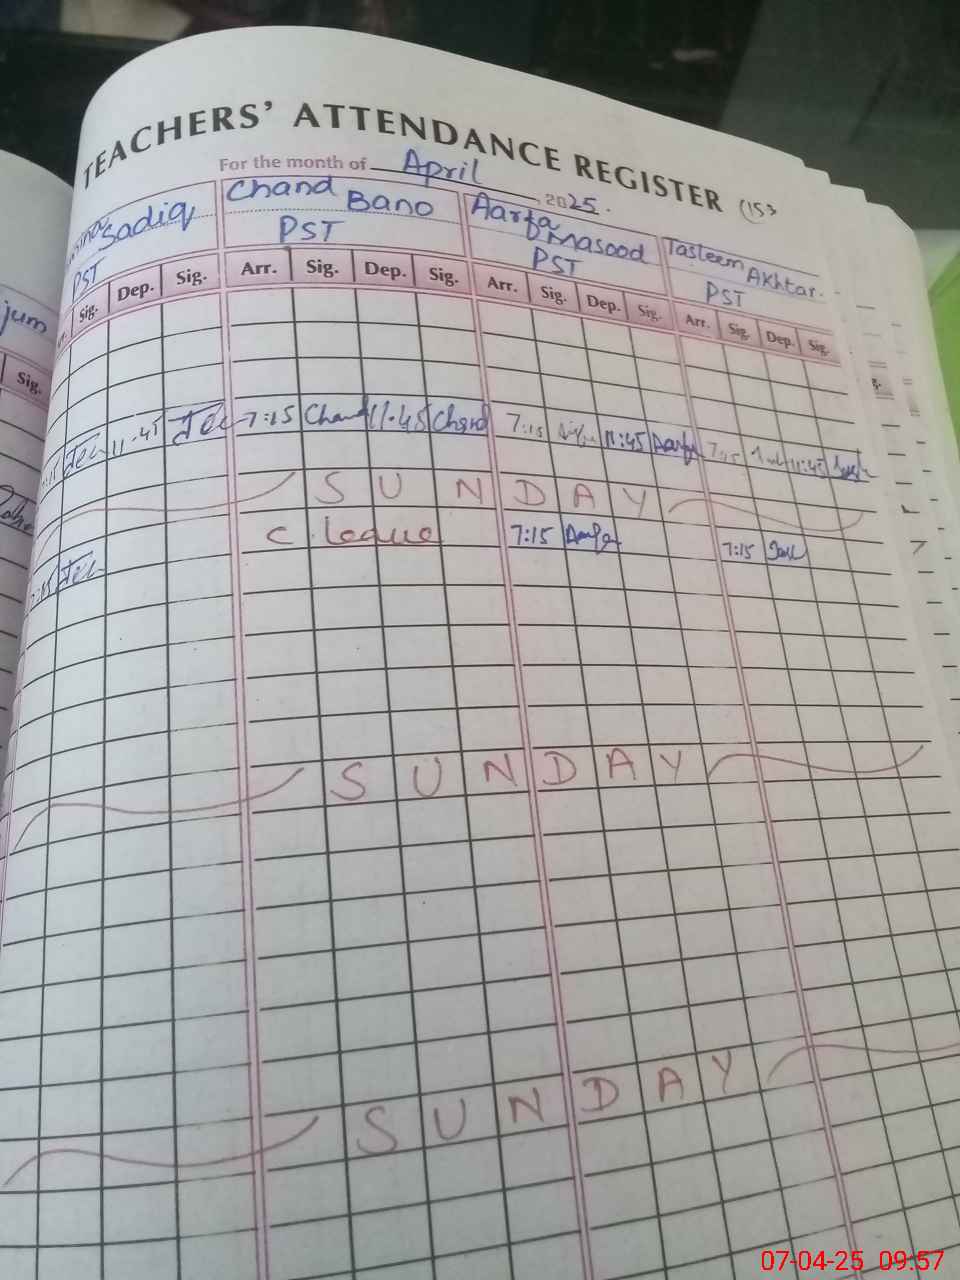 TEACHERS' ATTENDANCE REGISTER (153
For the month of April, 2025.
Sadiq Chand Bano Aarfa Masood Tasleem Akhtar.
PST PST PST PST
jum
Sig. Dep. Sig. Arr. Sig. Dep. Sig. Arr. Sig. Dep. Sig. Arr. Sig. Dep. Sig.
Sig.
11.45 7:15 Chand 11.45 Chand 7:15 11:45 Aarfa 7:15 11:45
SUNDAY
C Leave 7:15 Aarfa 7:15
SUNDAY
SUNDAY
07-04-25 09:57